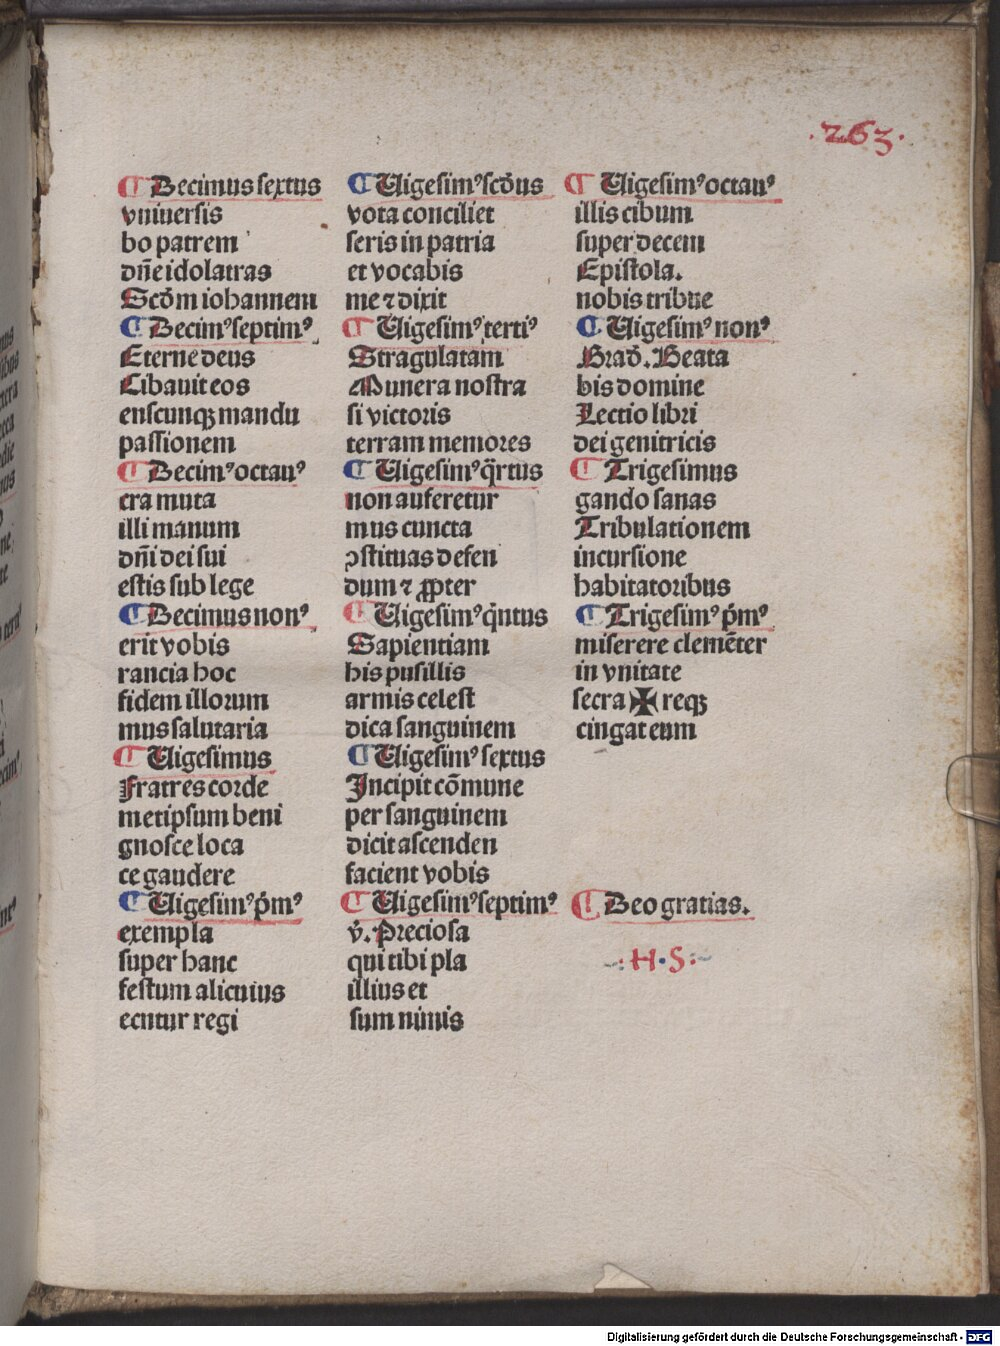 .263.
¶ Decimus sextus
vniuersis
bo patrem
dn̄e idolatras
Scd̄m iohannem
¶ Decimꝰ septimꝰ
Eterne deus
Cibauit eos
enscunqꝫ mandu
passionem
¶ Decimꝰ octauꝰ
cra muta
illi manum
dn̄i dei sui
estis sub lege
¶ Decimus nonꝰ
erit vobis
rancia hoc
fidem illorum
mus salutaria
¶ Uigesimus
Fratres corde
metipsum beni
gnosce loca
ce gaudere
¶ Uigesimꝰ p̄mꝰ
exempla
super hanc
festum alicuius
ecutur regi
¶ Uigesimꝰ scd̄us
vota conciliet
seris in patria
et vocabis
me ⁊ dixit
¶ Uigesimꝰ tertiꝰ
Stragulatam
Munera nostra
si victoris
terram memores
¶ Uigesimꝰ q̄rtus
non auferetur
mus cuncta
ꝯstituas defen
dum ⁊ ꝓpter
¶ Uigesimꝰ q̄ntus
Sapientiam
his pusillis
armis celest
dica sanguinem
¶ Uigesimꝰ sextus
Incipit cōmune
per sanguinem
dicit ascenden
facient vobis
¶ Uigesimꝰ septimꝰ
v̄. Preciosa
qui tibi pla
illius et
sum nimis
¶ Uigesimꝰ octauꝰ
illis cibum
super decem
Epistola.
nobis tribue
¶ Uigesimꝰ nonꝰ
Grad̄. Beata
bis domine
Lectio libri
dei genitricis
¶ Trigesimus
gando sanas
Tribulationem
incursione
habitatoribus
¶ Trigesimꝰ p̄mꝰ
miserere clemēter
in vnitate
secra ✠ reqꝫ
cingat eum
¶ Deo gratias.
·:H·S:·
Digitalisierung gefördert durch die Deutsche Forschungsgemeinschaft - DFG